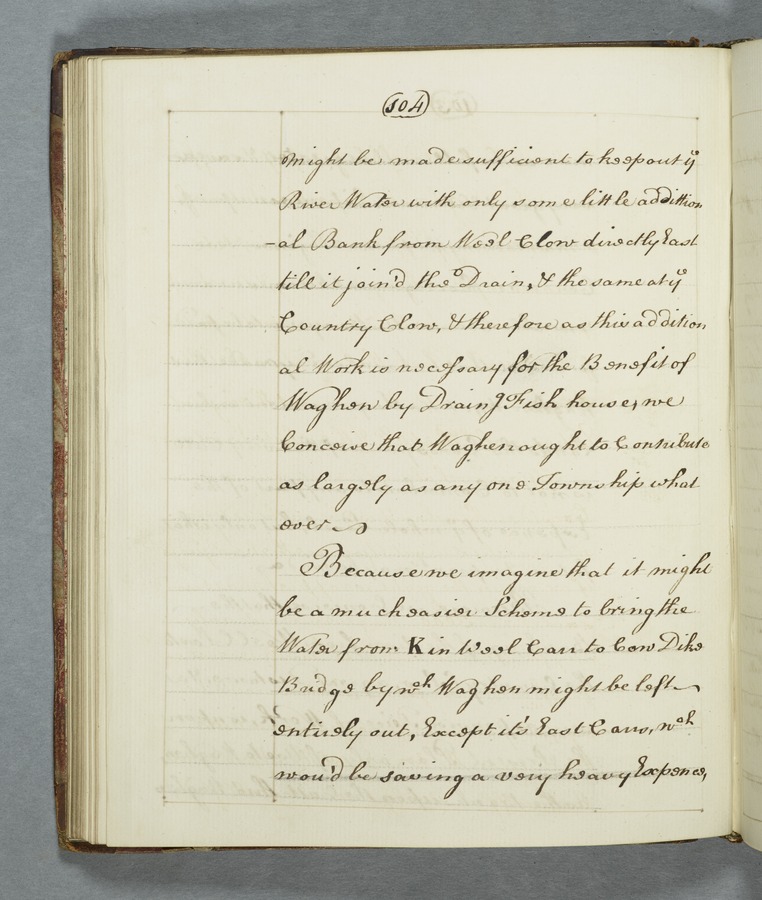 104
might be made sufficient to keep out yͤ
River Water with only some little addition
-al Bank from Weel Clow directly East
till it join'd the Drain, & the same at yͤ
Country Clow, & therefore as this addition
al Work is necessary for the Benefit of
Waghen by Drain J Fish house, we
Conceive that Waghen ought to Contribute
as largely as any one Township what
ever
Because we imagine that it might
be a much easier Scheme to bring the
Water from K in Weel Carr to Cow Dike
Bridge by wᶜʰ Waghen might be left
entirely out, Except it's East Carrs, wᶜʰ
wou'd be saving a very heavy Expence,